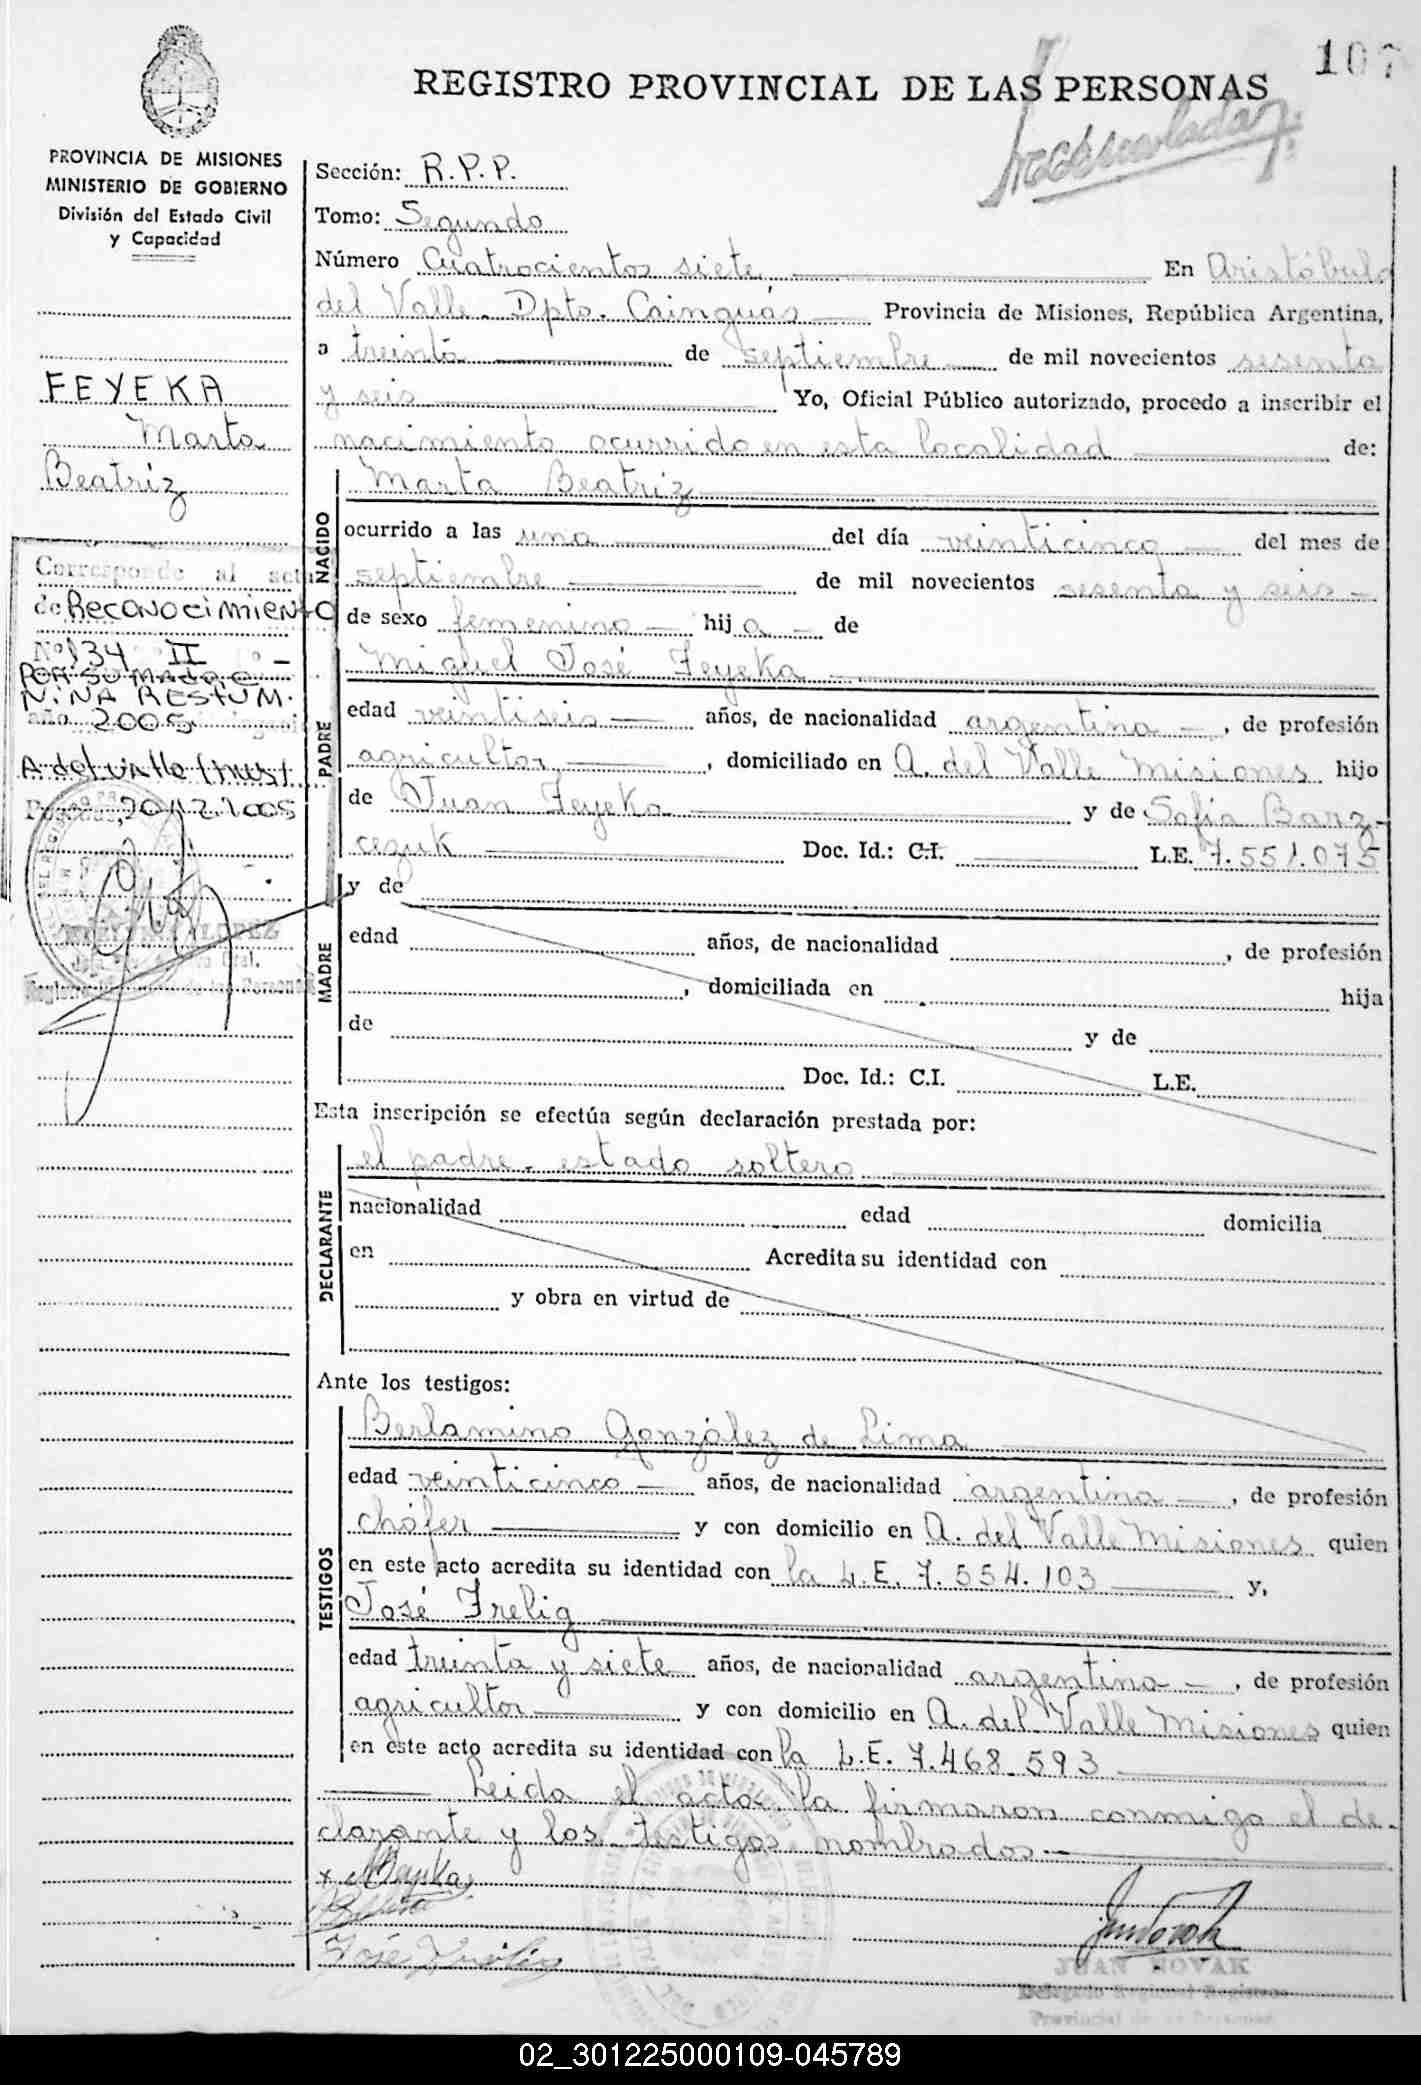 107
REGISTRO PROVINCIAL DE LAS PERSONAS
PROVINCIA DE MISIONES
MINISTERIO DE GOBIERNO
División del Estado Civil
y Capacidad
FEYEKA
Marta
Beatriz
Corresponde al acta
de Reconocimiento
Nº 134 II
POR SU MADRE
NINA RESTUM.
año 2005
A del Valle (Mnes).
Posadas, 20/12/2005
Sección: R.P.P.
Tomo: Segundo
Número Cuatrocientos siete En Aristóbulo
del Valle. Dpto. Cainguás Provincia de Misiones, República Argentina,
a treinta de septiembre de mil novecientos sesenta
y seis Yo, Oficial Público autorizado, procedo a inscribir el
nacimiento ocurrido en esta localidad de:
NACIDO
Marta Beatriz
ocurrido a las una del día veinticinco del mes de
septiembre de mil novecientos sesenta y seis
de sexo femenino hija de
PADRE
Miguel José Feyeka
edad veintiseis años, de nacionalidad argentina, de profesión
agricultor, domiciliado en A. del Valle Misiones hijo
de Juan Feyeka y de Sofia Barz-
czuk Doc. Id.: C.I. L.E. 7.551.075
MADRE
y de
edad años, de nacionalidad , de profesión
, domiciliada en hija
de y de
Doc. Id.: C.I. L.E.
Esta inscripción se efectúa según declaración prestada por:
DECLARANTE
el padre. estado soltero
nacionalidad edad domicilia
en Acredita su identidad con
y obra en virtud de
Ante los testigos:
TESTIGOS
Berlamino González de Lima
edad veinticinco años, de nacionalidad argentina, de profesión
chófer y con domicilio en A. del Valle Misiones quien
en este acto acredita su identidad con la L.E. 7.554.103 y,
José Frelig
edad treinta y siete años, de nacionalidad argentina, de profesión
agricultor y con domicilio en A. del Valle Misiones quien
en este acto acredita su identidad con la L.E. 7.468.593
Leida el acta, la firmaron conmigo el de-
clarante y los testigos nombrados.
JUAN NOVAK
Delegado Regional Registro
Provincial de las Personas
02_301225000109-045789